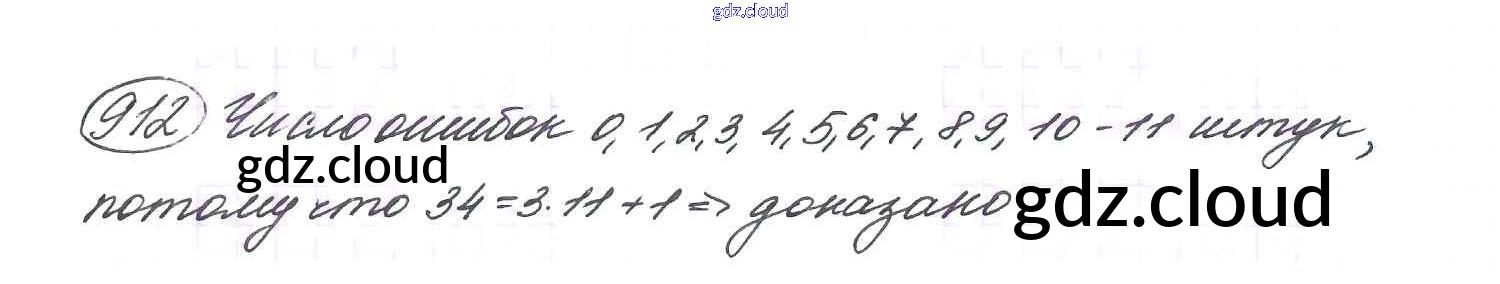 gdz.cloud
912 Число ошибок 0, 1, 2, 3, 4, 5, 6, 7, 8, 9, 10 - 11 штук,
gdz.cloud
потому что 34 = 3·11 + 1 => доказано
gdz.cloud